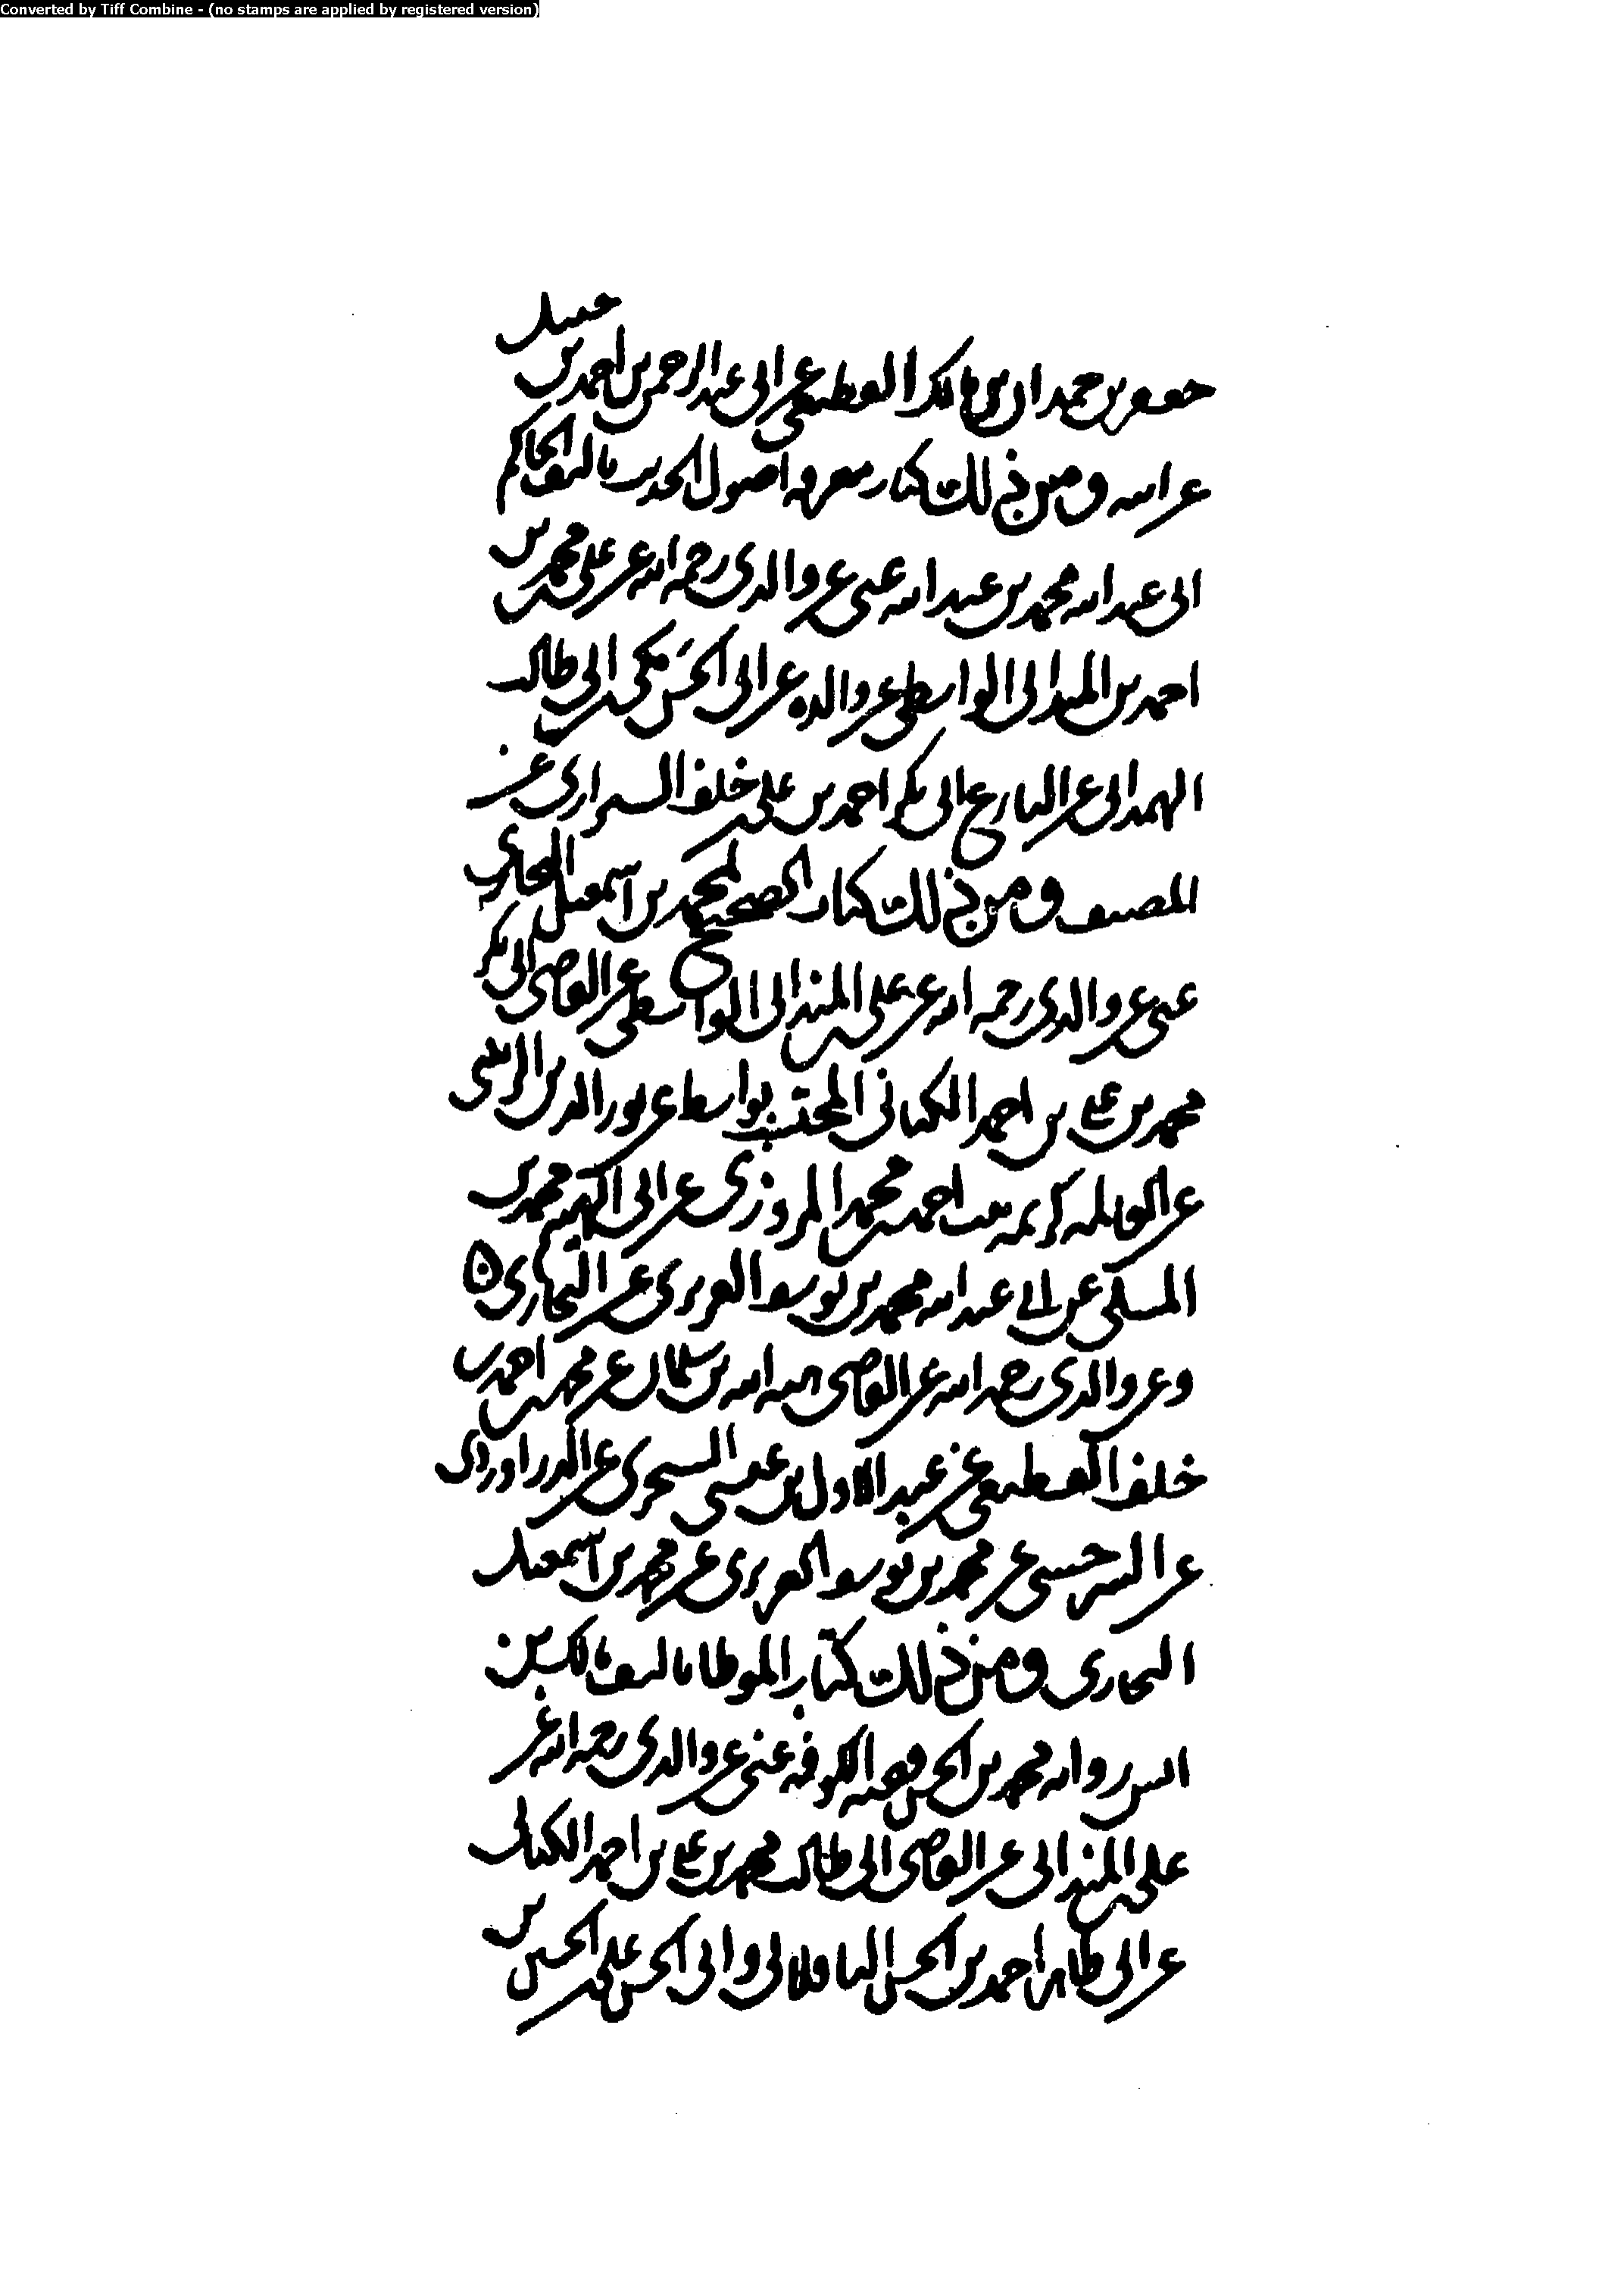 Converted by Tiff Combine - (no stamps are applied by registered version)
جعفر بن حمدان بن مالك القطيعي عن ابي عبد الرحمن بن احمد بن حنبل
عن ابيه ومن ذلك كتاب معرفه اصول الحديث تاليف الحاكم
ابي عبد الله محمد بن عبد الله عني عن والدي رحمه الله عن علي بن محمد بن
احمد بن المندائي الواسطي عن والده عن ابي الحسن مكي بن ابي طالب
الهمداني عن البارع ابي بكر احمد بن علي بن خلف الشيرازي عن
المصنف ومن ذلك كتاب الصحيح لمحمد بن اسمعيل البخاري
عني عن والدي رحمه الله عن علي بن المندائي الواسطي عن القاضي ابي بكر
محمد بن علي بن احمد الكتاني المحتسب بواسط عن نور الدين
عن العالمه كريمه بنت احمد بن محمد المروزي عن ابي الهيثم محمد بن
المكي عن ابي عبد الله محمد بن يوسف الفربري عن البخاري
وعن والدي رحمه الله عن القاضي هبه الله بن سلمان عن محمد بن احمد بن
خلف القطيعي عن عبد الاول بن عيسى السجزي عن الدراوردي
عن السرخسي عن محمد بن يوسف الفربري عن محمد بن اسمعيل
البخاري ومن ذلك كتاب الموطا تاليف مالك بن
انس روايه محمد بن الحسن فقيه الكوفه عني عن والدي رحمه الله عن
علي بن المندائي عن القاضي ابي طالب محمد بن علي بن احمد الكتاني
عن ابي طاهر احمد بن الحسن الباقلاني وابي الحسن علي بن الحسين بن